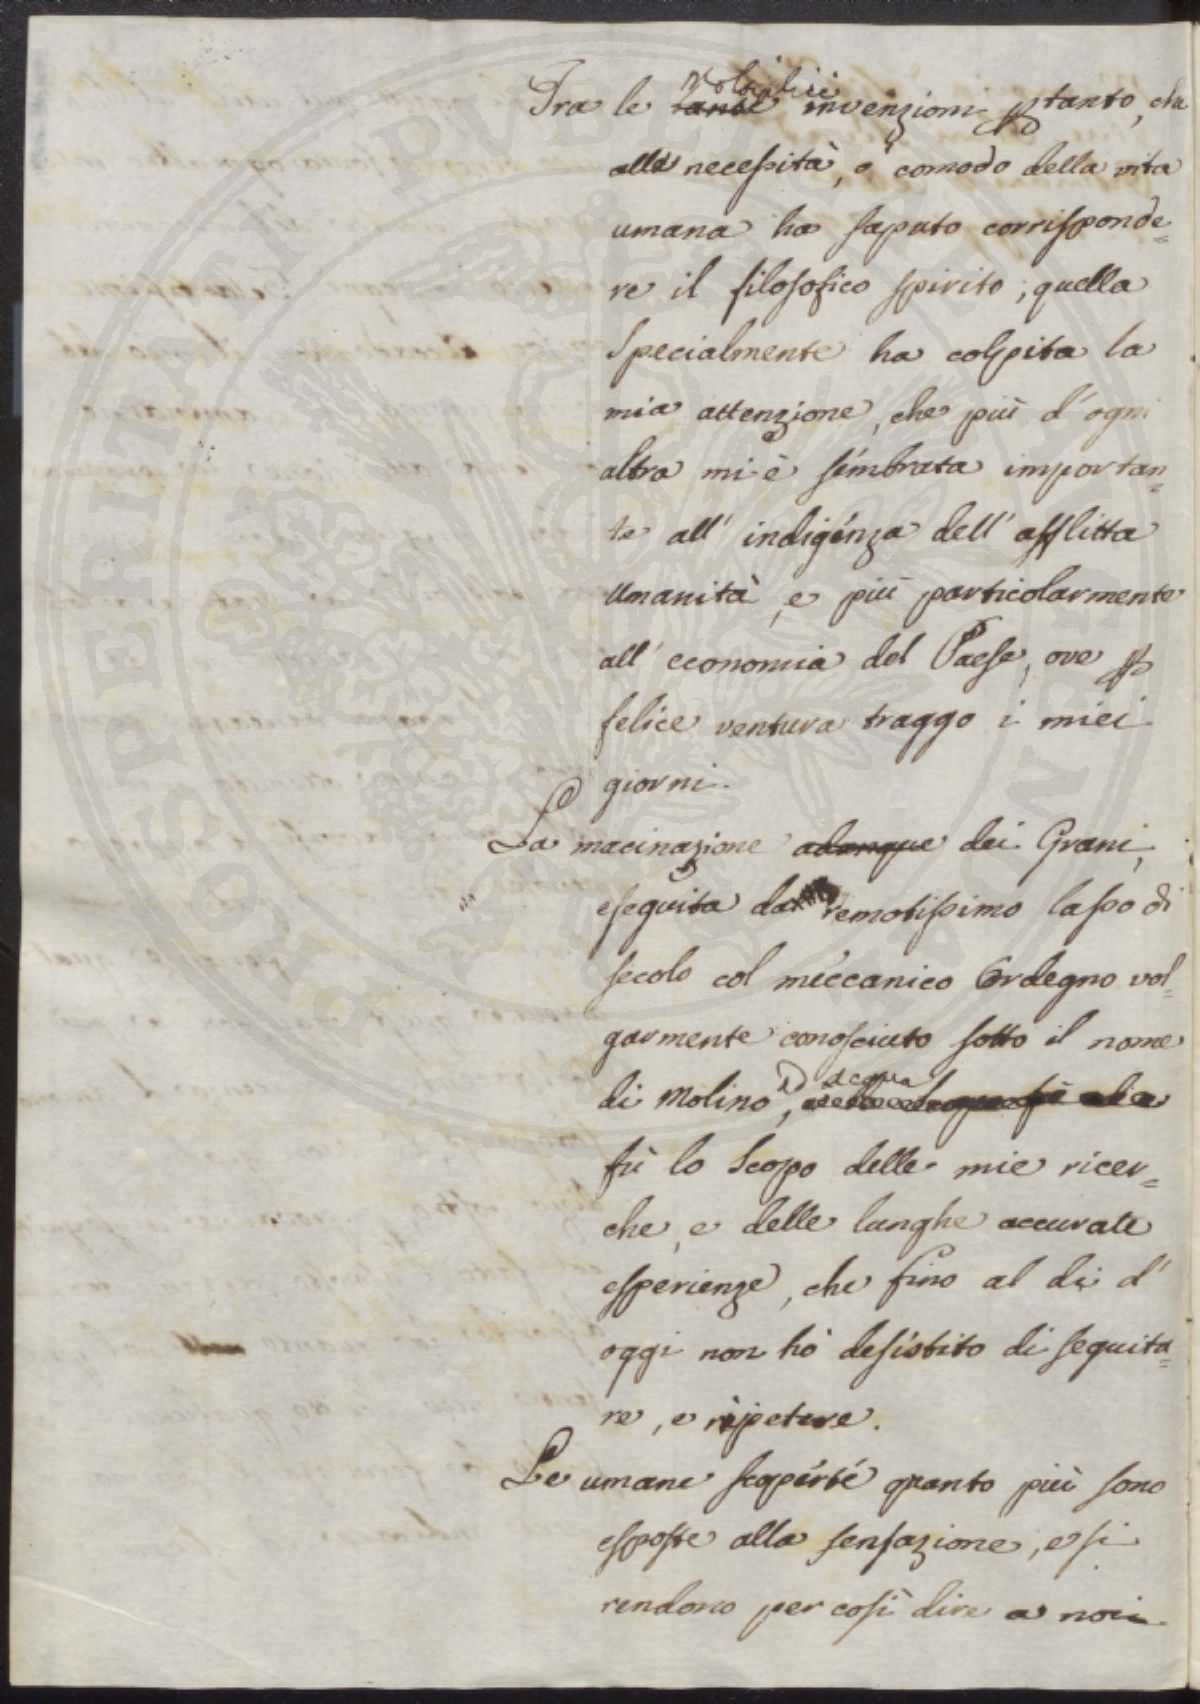 Tra le moltiplici
tante invenzioni ꝑtanto, che
alla necessità, o comodo della vita
umana ha saputo corrisponde=
re il filosofico spirito, quella
specialmente ha colpita la
mia attenzione, che più d'ogni
altra mi è sembrata importan=
te all' indigenza dell' afflitta
umanità, e più particolarmente
all' economia del Paese, ove ꝑ
felice ventura traggo i miei
giorni.
La macinazione adunque dei Grani,
eseguita da remotissimo lasso di
secolo col meccanico Ordegno vol=
garmente conosciuto sotto il nome
di Molino, ad acqua
fù lo scopo delle mie ricer=
che, e delle lunghe accurate
esperienze, che fino al dì d'
oggi non hò desistito di seguita=
re, e ripetere.
Le umane scoperte quanto più sono
esposte alla sensazione, e si
rendono per così dire a noi
PVBLICAE PROSPERITATI